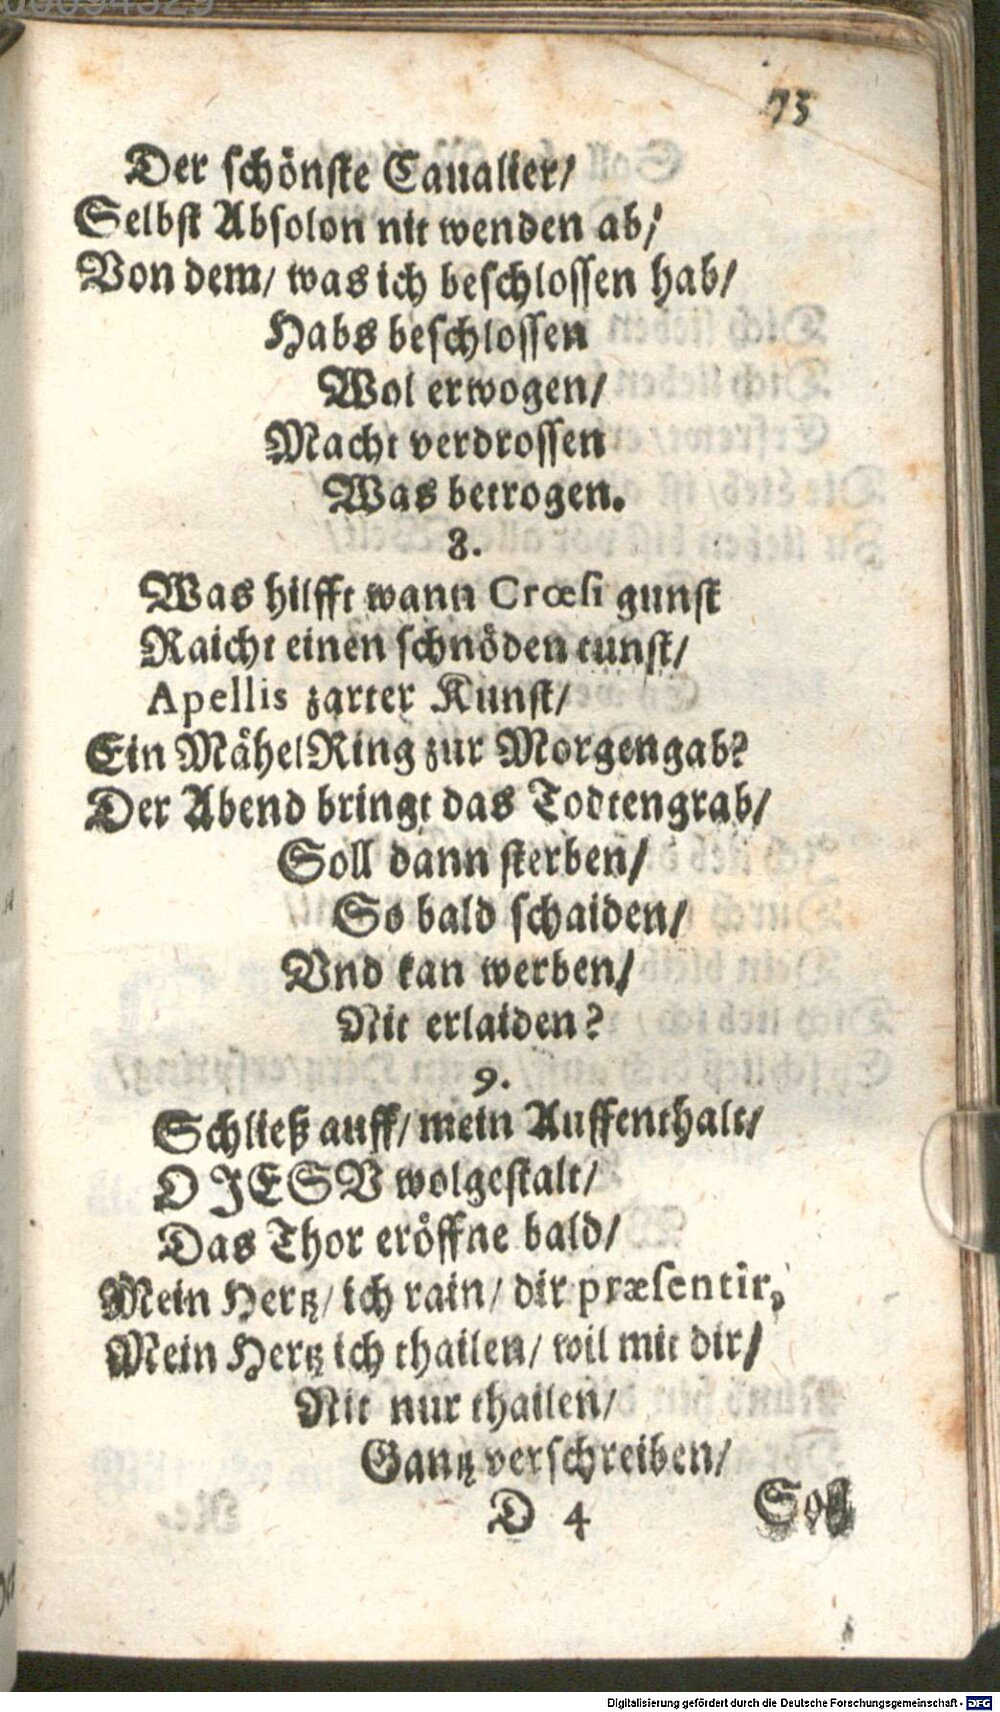 00094329
73
Der schönste Caualier/
Selbst Absolon nit wenden ab/
Von dem/ was ich beschlossen hab/
Habs beschlossen
Wol erwogen/
Macht verdrossen
Was betrogen.
8.
Was hilfft wann Crœsi gunst
Raicht einen schnöden tunst/
Apellis zarter Kunst/
Ein MähelRing zur Morgengab?
Der Abend bringt das Todtengrab/
Soll dann sterben/
So bald schaiden/
Vnd kan werben/
Nit erlaiden?
9.
Schließ auff/ mein Auffenthalt/
O JESV wolgestalt/
Das Thor eröffne bald/
Mein Hertz/ ich rain/ dir præsentir,
Mein Hertz ich thailen/ wil mit dir/
Nit nur thailen/
Gantz verschreiben/
D 4 Soll
Digitalisierung gefördert durch die Deutsche Forschungsgemeinschaft - DFG